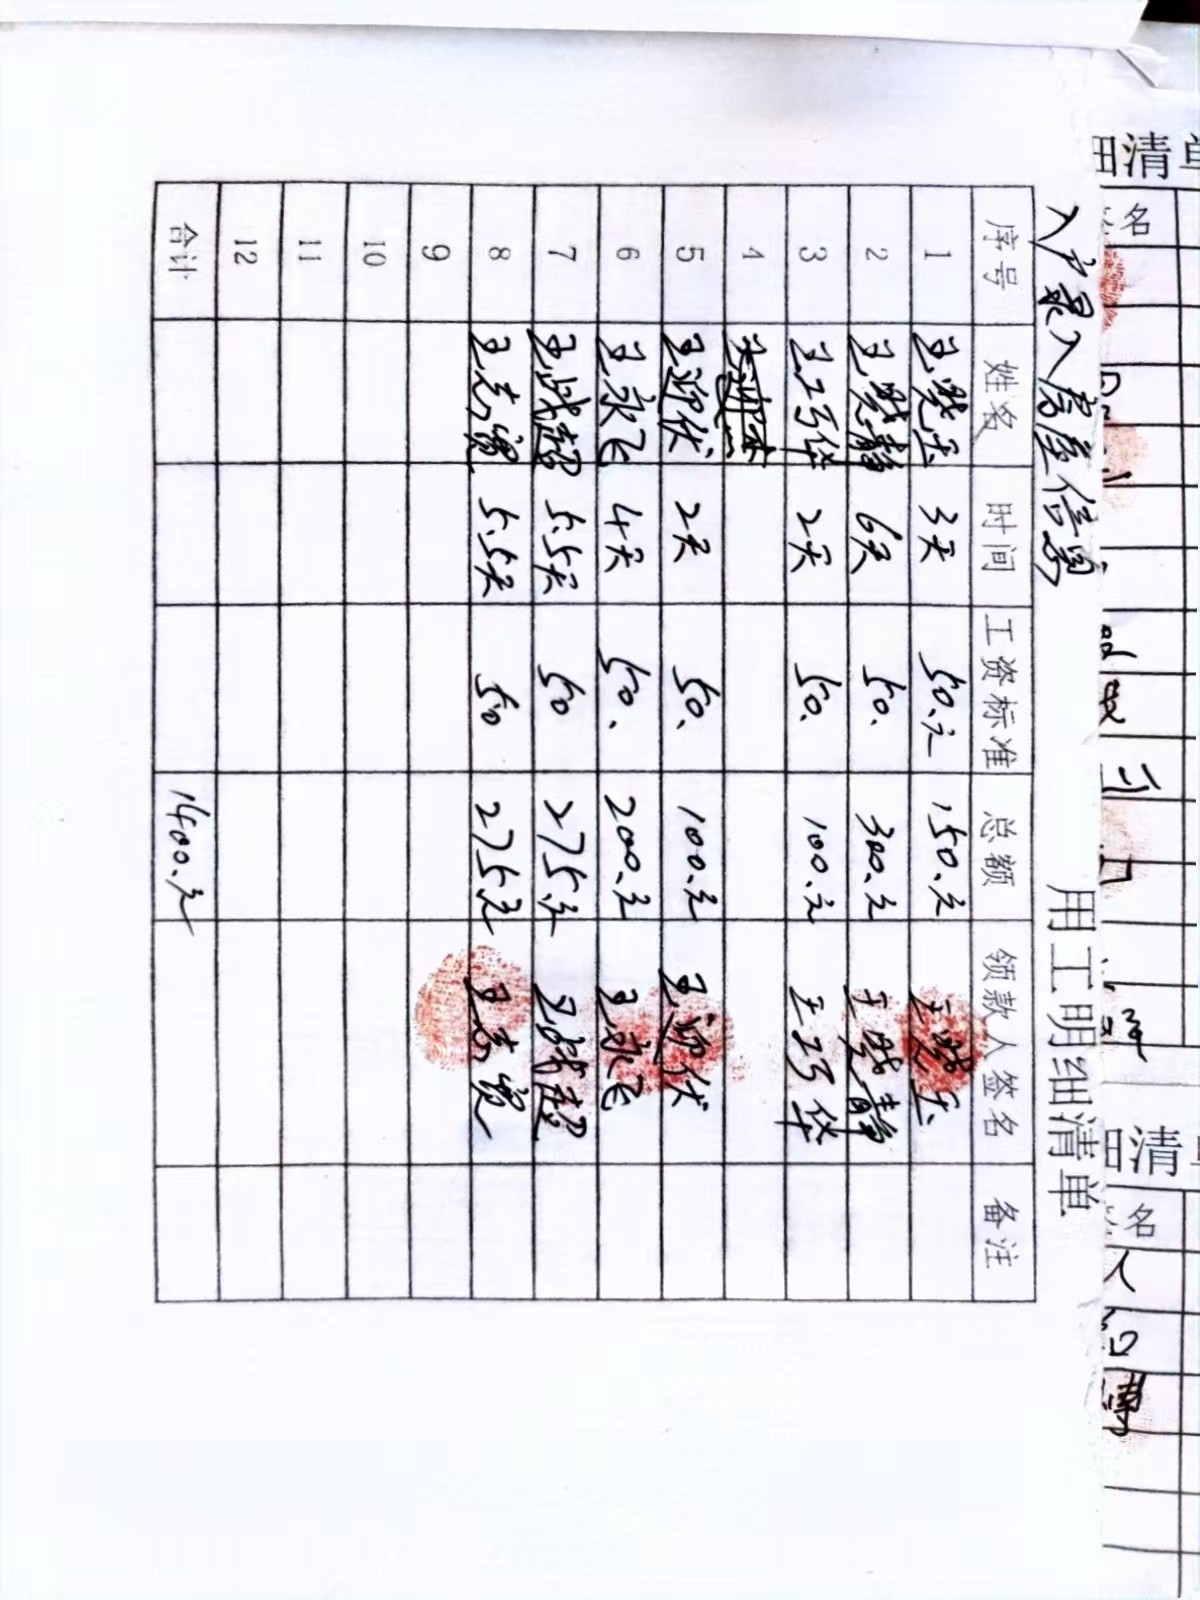 入户录入房屋信息 用工明细清单
序号 姓名 时间 工资标准 总额 领款人签名 备注
1 3天 50.元 150.元
2 王晓静 6天 50. 300.元 王晓静
3 王巧华 2天 50. 100.元 王巧华
4
5 王迎伏 2天 50. 100.元 王迎伏
6 王永飞 4天 50. 200.元 王永飞
7 王战超 5.5天 50 275.元 王战超
8 王志 5.5天 50 275元 王志
9
10
11
12
合计 1400.元
细清单
名
细清
名